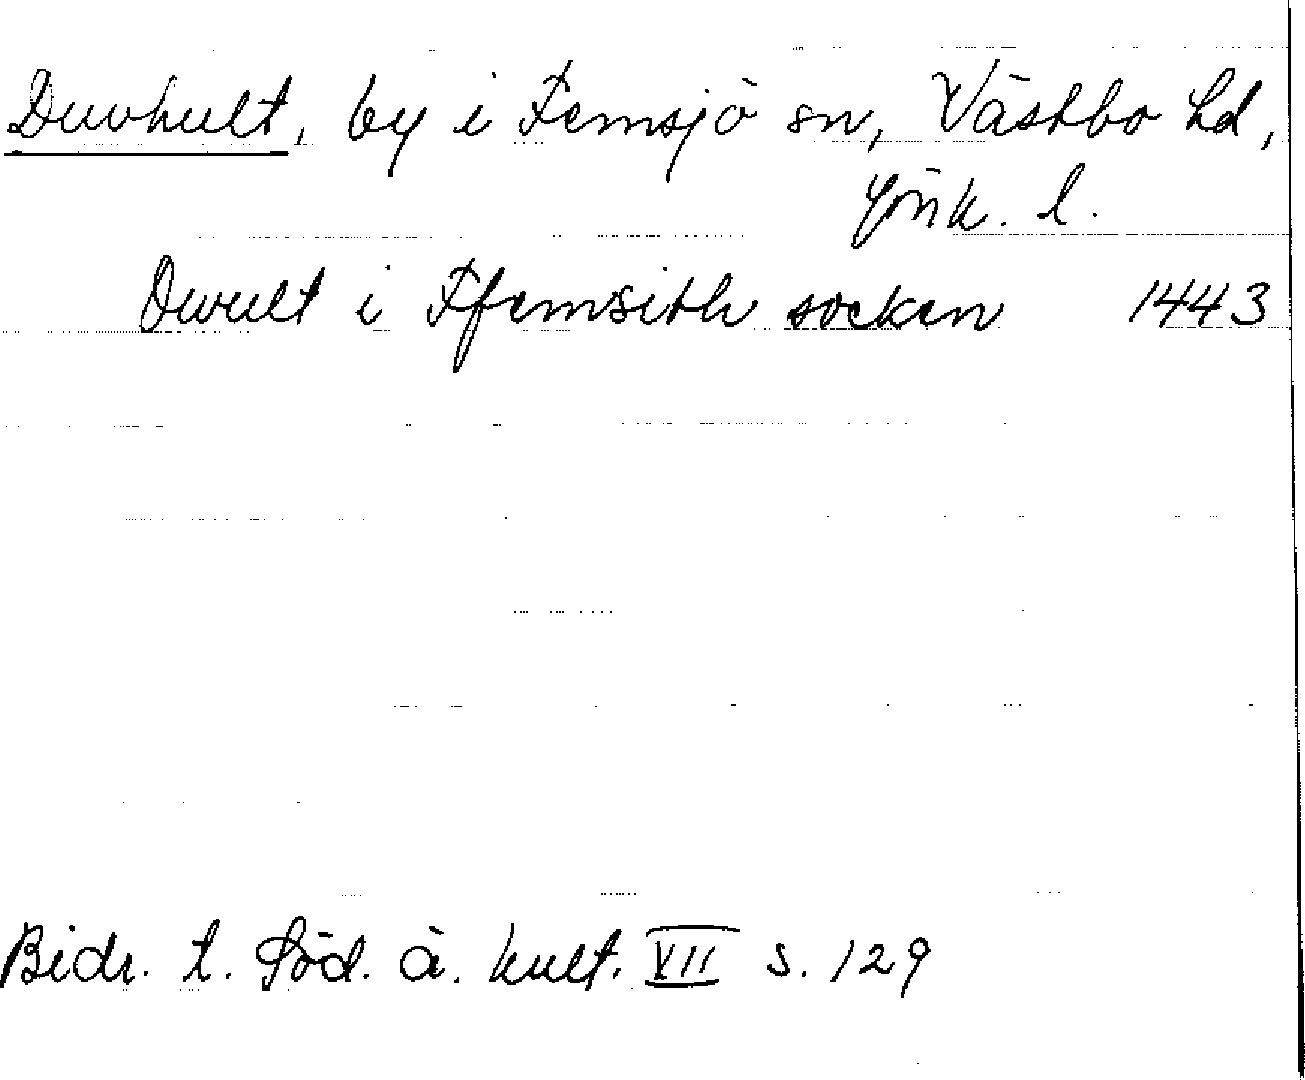 Duvhult, by i Femsjö sn, Västbo hd,
Jönk. l.
Dwult i Ffemsith socken 1443
Bidr. t. Söd. ä. kult. VII s. 129